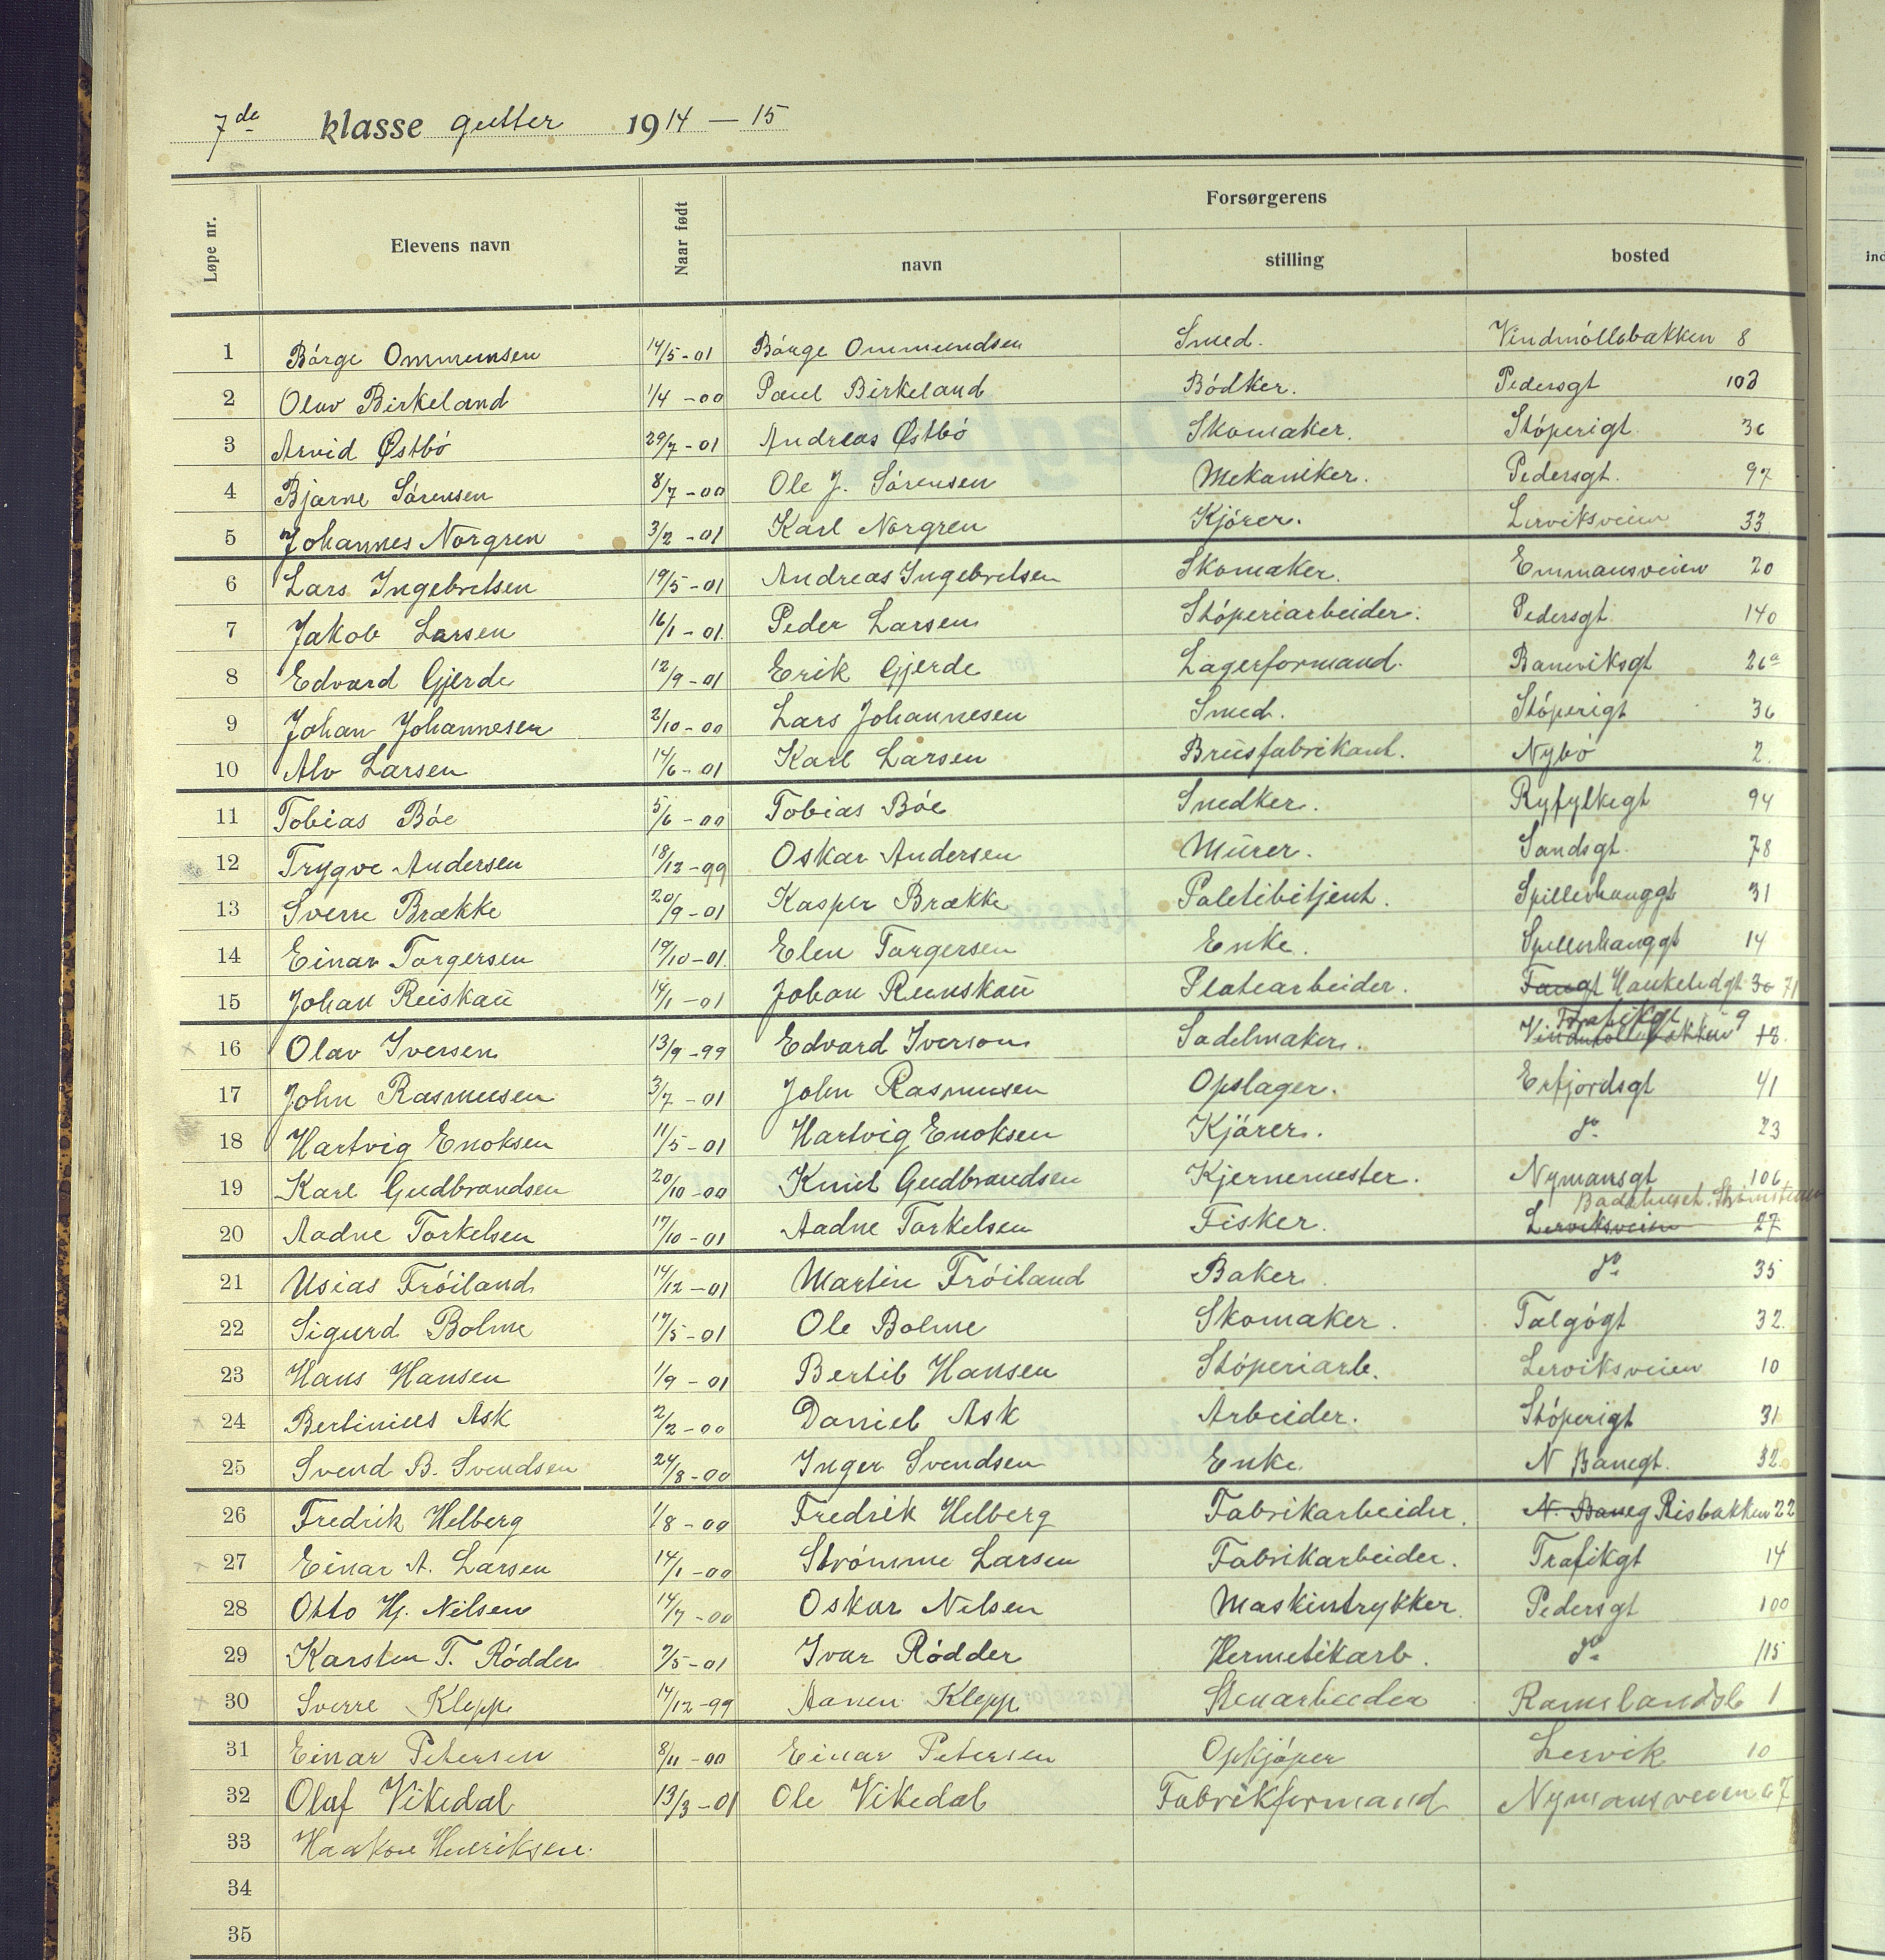 7de klasse gutter 1914 — 15
Løpe nr. Elevens navn Naar født Forsørgerens
navn stilling bosted
1 Børge Ommunsen 14/5-01 Børge Ommundsen Smed. Vindmøllebakken 8
2 Olav Birkeland 1/4-00 Paul Birkeland Bødker. Pedersgt
3 Arvid Østbø 29/7-01 Andreas Østbø Skomaker. Støperigt 36
4 Bjarne Sørensen 8/7-00 Ole J. Sørensen Mekaniker. Pedersgt. 97
5 Johannes Norgren 3/2-01 Karl Norgren Kjører. Lerviksveien 33
6 Lars Ingebretsen 19/5-01 Andreas Ingebretsen Skomaker. Emmausveien 20
7 Jakob Larsen 16/1-01. Peder Larsen Støperiarbeider. Pedersgt. 140
8 Edvard Gjerde 12/9-01 Erik Gjerde Lagerformand. Baneviksgt 26a
9 Johan Johannesen 2/10-00 Lars Johannesen Smed. Støperigt 36
10 Alv Larsen 14/6-01 Karl Larsen Brusfabrikant. Nybø 2.
11 Tobias Bøe 5/6-00 Tobias Bøe Snedker. Ryfylkegt 94
12 Trygve Andersen 18/12-99 Oskar Andersen Murer. Sandsgt. 78
13 Sverre Brække 20/9-01 Kasper Brække Poletibitjent. Spillerhauggt 31
14 Einar Torgersen 19/10-01. Elen Torgersen Enke. Spillerhauggt 14
15 Johan Reiskau 14/1-01 Johan Reinskau Platearbeider. Haukeligt 71
Trafikgt 9
16 Olav Iversen 13/9-99 Edvard Iverson Sadelmaker. Vindmøllebakken 13.
17 John Rasmussen 3/7-01 John Rasmussen Opslager. Erfjordsgt 41
18 Hartvig Enoksen 11/5-01 Hartvig Enoksen Kjører. do 23
19 Karl Gudbrandsen 20/10-00 Knut Gudbrandsen Kjernemester. Nymansgt 106
Badehuset.
20 Aadne Torkelsen 17/10-01 Aadne Torkelsen Fisker. Lerviksveien 27
21 Usias Frøiland 14/12-01 Martin Frøiland Baker. do 35
22 Sigurd Bolme 17/5-01 Ole Bolme Skomaker. Talgøgt 32.
23 Hans Hansen 1/9-01 Bertil Hansen Støperiarb. Lerviksveien 10
24 Bertinius Ask 2/2-00 Daniel Ask Arbeider. Støperigt 31
25 Svend B. Svendsen 24/8-00 Inger Svendsen Enke. N Banegt. 32.
26 Fredrik Helberg 1/8-00 Fredrik Helberg Fabrikarbeider. N. Baneg Risbakken 22
27 Einar A. Larsen 14/1-00 Strømme Larsen Fabrikarbeider. Trafikgt 14
28 Otto Hj. Nilsen 14/7-00 Oskar Nilsen Maskintrykker. Pedersgt 100
29 Karsten T. Rødder 7/5-01 Ivar Rødder Hermetikarb. do 115
30 Sverre Klepp 17/12-99 Aanen Klepp Stenarbeider Ramslandsb 1
31 Einar Petersen 8/11-00 Einar Petersen Opkjøper Lervik 10
32 Olaf Vikedal 13/3-01 Ole Vikedal Fabrikformand Nymansveien 67
33 Haakon Henriksen.
34
35